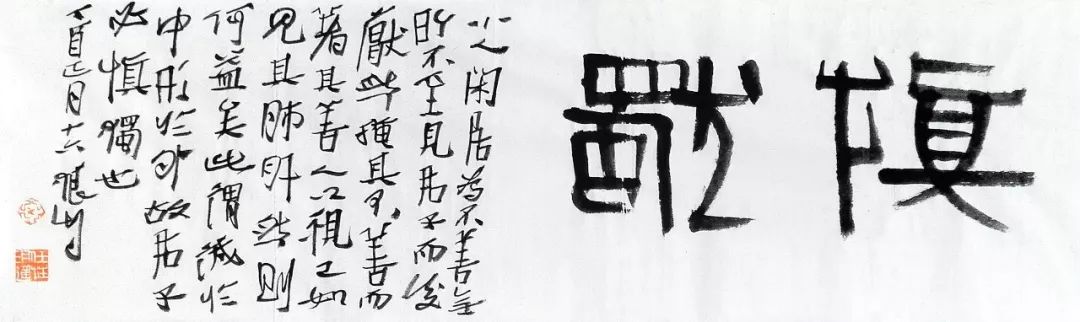 慎獨
小人閑居為不善無
所不至見君子而後
厭然掩其不善而
著其善人之視己如
見其肺肝然則
何益矣此謂誠於
中形於外故君子
必慎獨也
丁酉正月十六